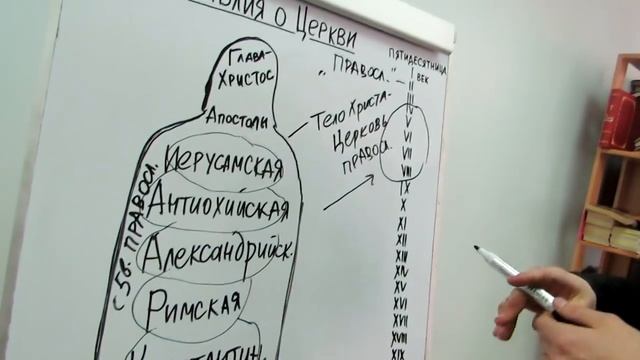 о Церкви
Глава-
Христос
Апостолы
Иерусамская
Антиохийская
Александрийск.
Римская
с 5в. правосл.
Тело Христа-
Церковь
правосл.
"Правосл."
Пятидесятница
I век
II
III
V
VI
VII
VIII
IX
X
XI
XII
XIII
XIV
XV
XVI
XVII
XVIII
XIX